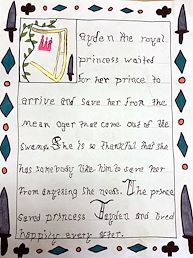 ayden the royal
princess waited
for her prince to
arrive and save her from the
mean oger that come out of the
swamp. She is so thankful that she
has somebody like him to save her
from anything she needs. The prince
saved princess Jayden and lived
happily every after.